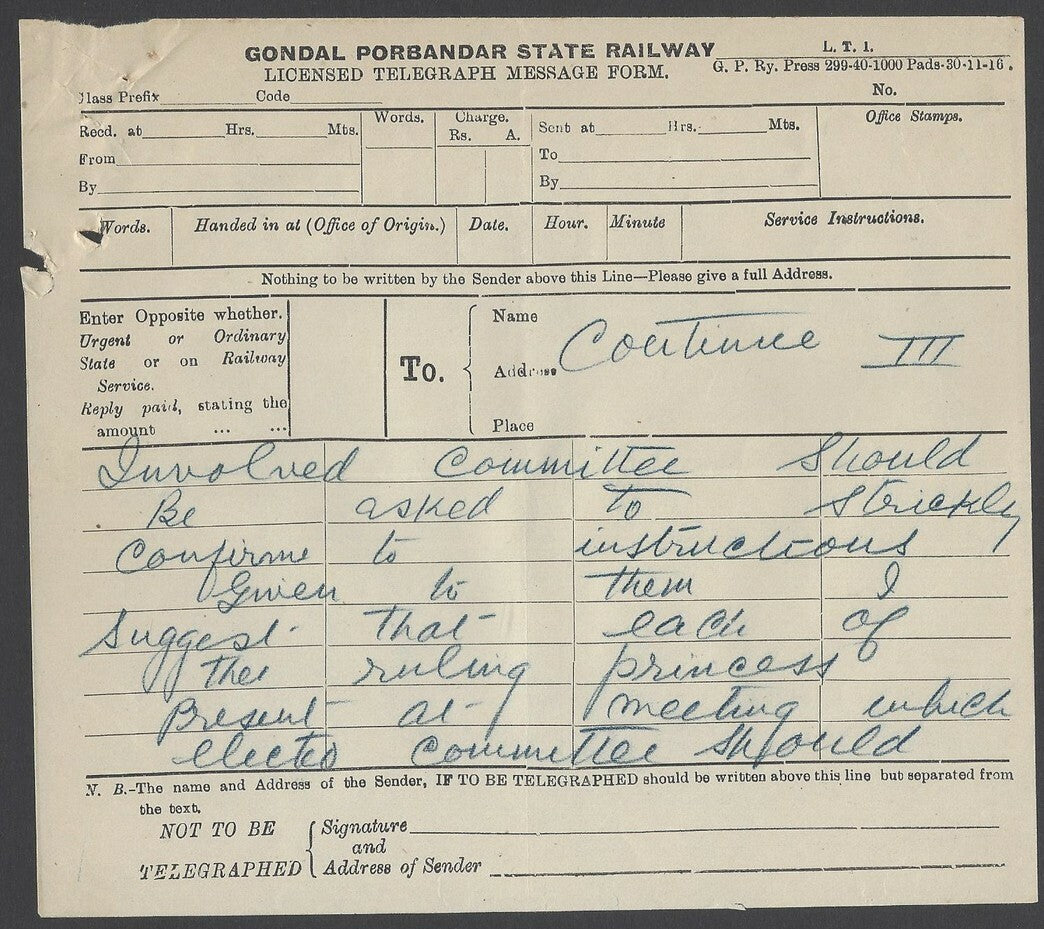 GONDAL PORBANDAR STATE RAILWAY
L. T. 1.
LICENSED TELEGRAPH MESSAGE FORM.
G. P. Ry. Press 299-40-1000 Pads-30-11-16.
Class Prefix Code No.
Recd. at Hrs. Mts. Words. Charge. Sent at Hrs. Mts. Office Stamps.
Rs. A.
From To
By By
Words. Handed in at (Office of Origin.) Date. Hour. Minute Service Instructions.
Nothing to be written by the Sender above this Line—Please give a full Address.
Enter Opposite whether.
Urgent or Ordinary
State or on Railway
Service.
Reply paid, stating the
amount ... ...
To.
Name
Address
Place
Continue III
Involved Committee Should
Be asked to strickly
Confirme to instructions
Given to them I
Suggest that each of
The ruling princess
Present at meeting which
elected Committee should
N. B.-The name and Address of the Sender, IF TO BE TELEGRAPHED should be written above this line but separated from
the text.
NOT TO BE
TELEGRAPHED
Signature
and
Address of Sender